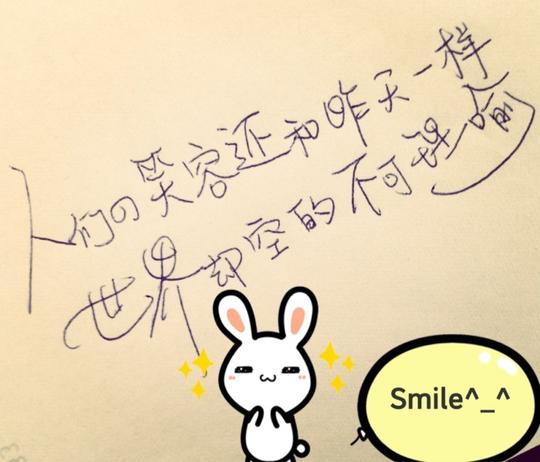 人们的笑容还和昨天一样
世界却空的不可理喻
Smile^_^